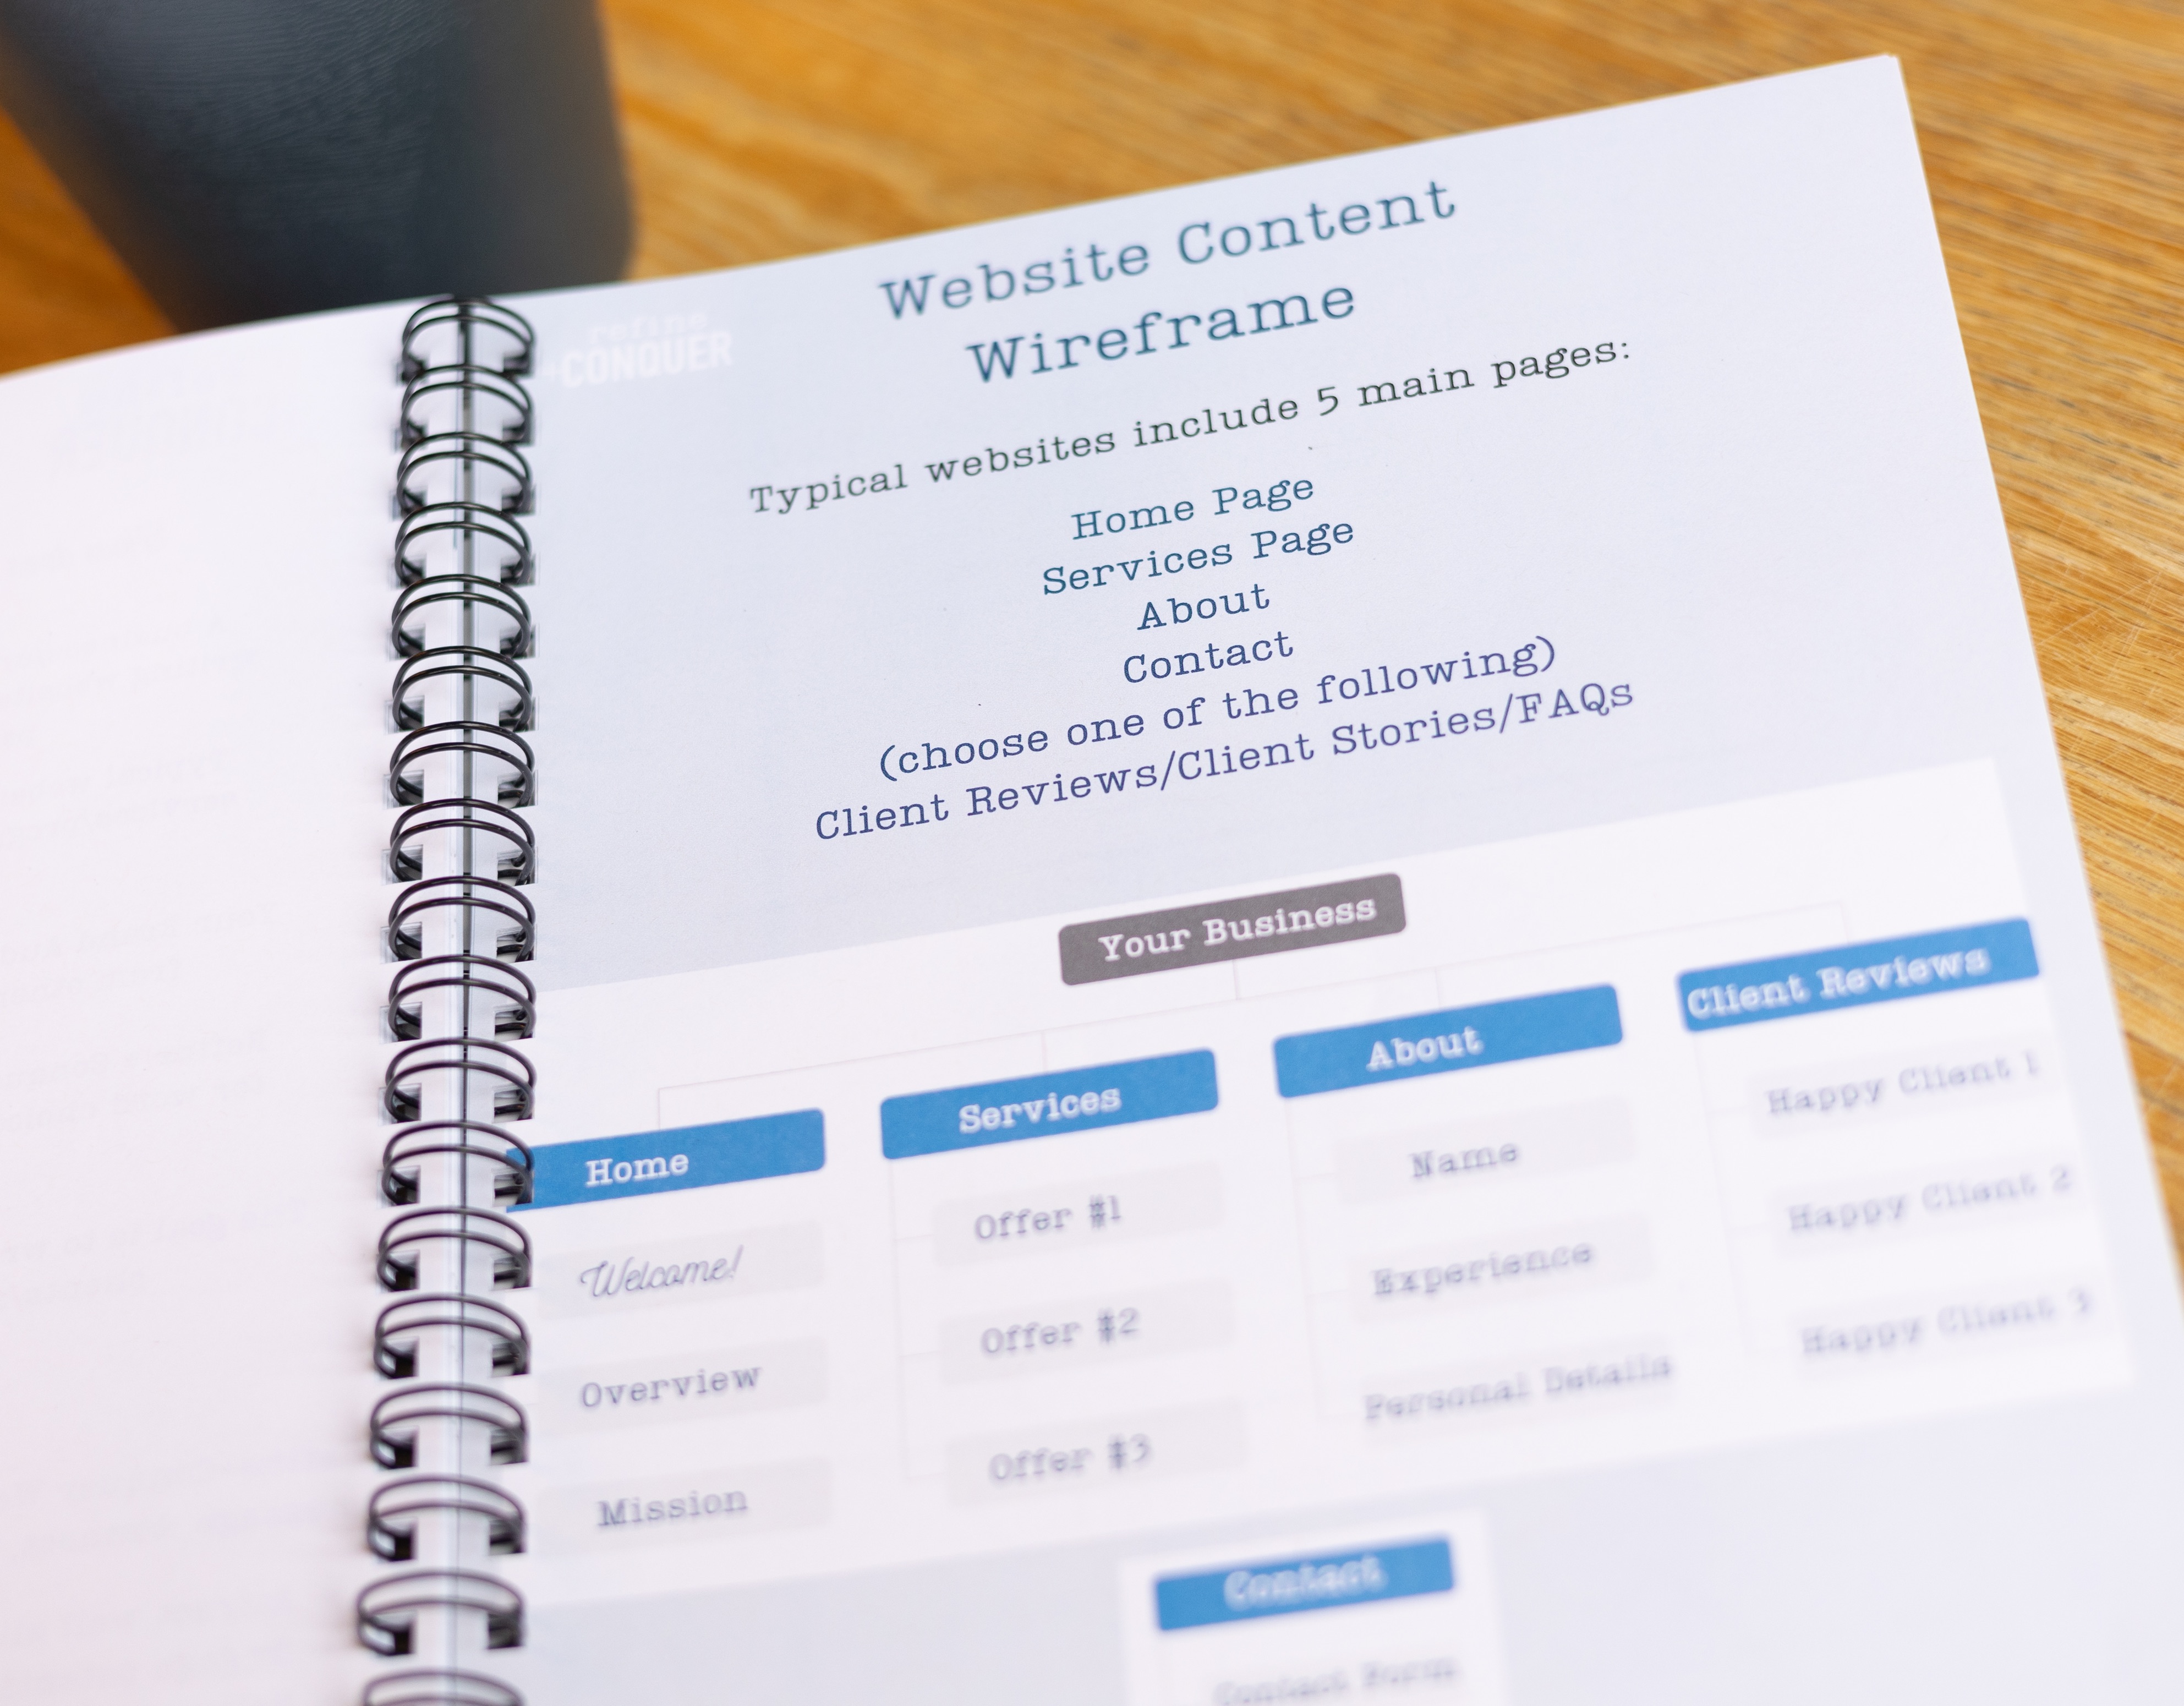 refine
+CONQUER
Website Content
Wireframe
Typical websites include 5 main pages:
Home Page
Services Page
About
Contact
(choose one of the following)
Client Reviews/Client Stories/FAQs
Your Business
Home
Welcome!
Overview
Mission
Services
Offer #1
Offer #2
Offer #3
About
Name
Experience
Personal Details
Client Reviews
Happy Client 1
Happy Client 2
Happy Client 3
Contact
Contact Form